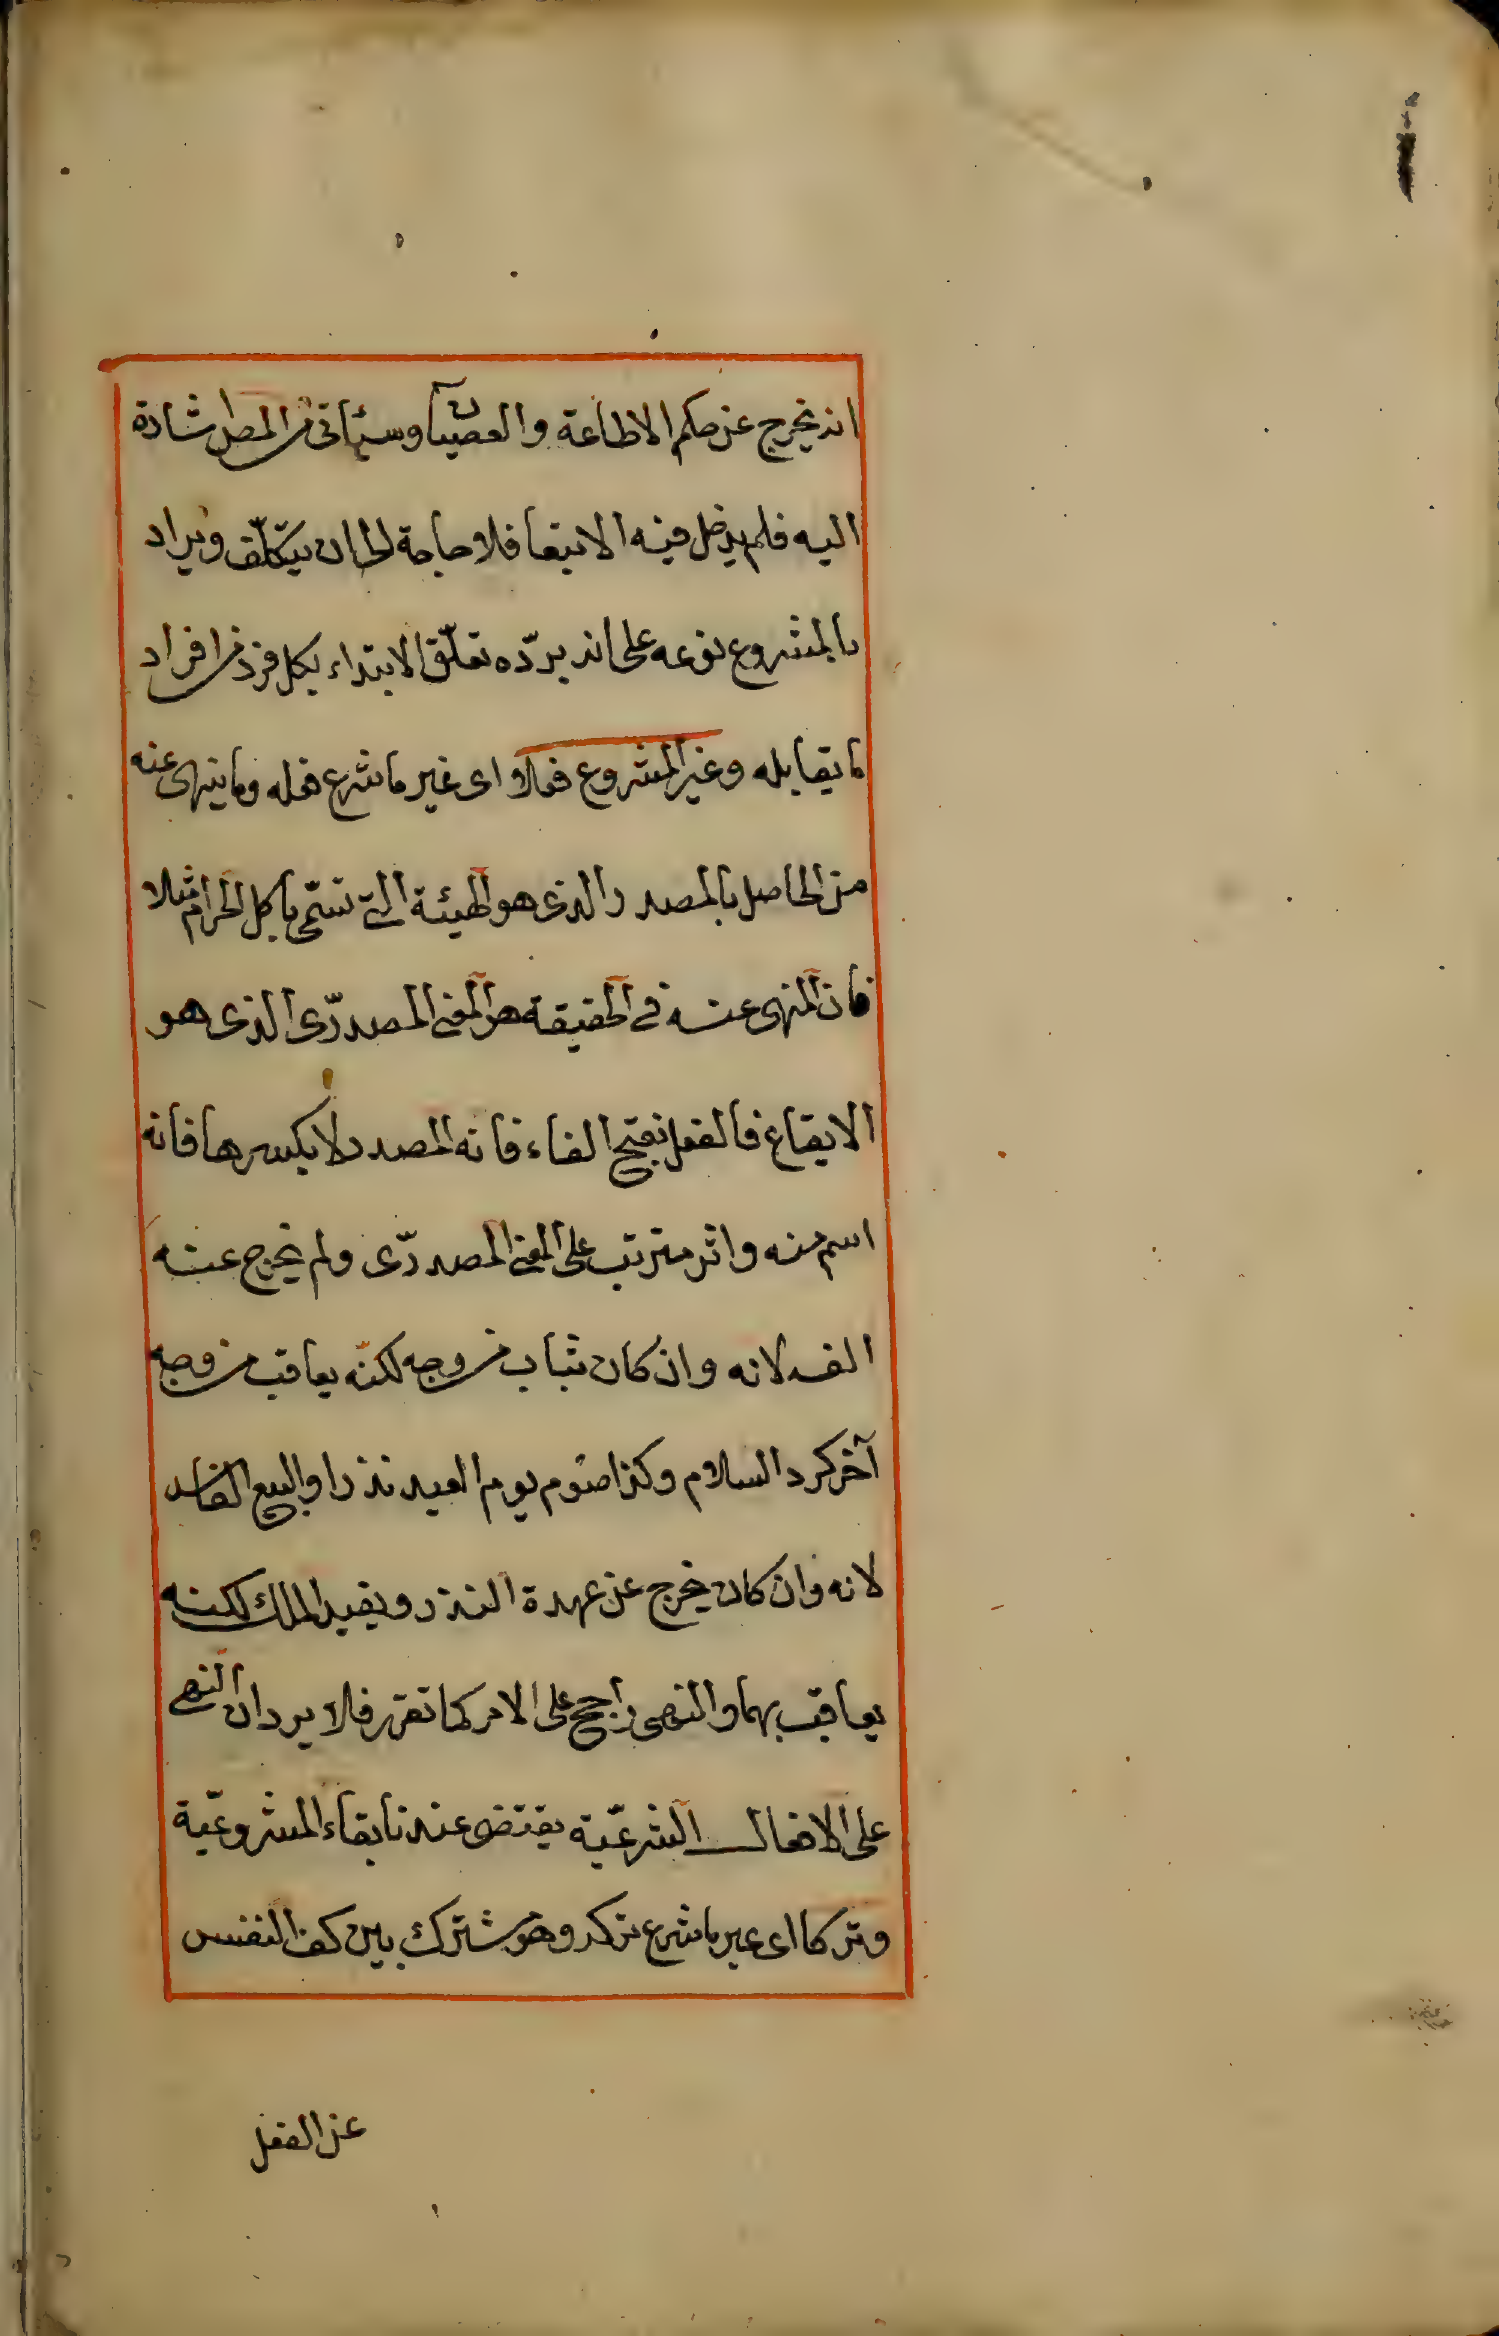 انه يخرج عن حكم الاطاعة والعصيان وسيأتي من المص اشارة
اليه فلم يدخل فيه الابتغا فلا حاجة لنا ان يتكلّف ويراد
بالمشروع نوعه على انه يردّه تعلّق الابتداء بكل فرد من افراد
ما يقابله وغير المشروع فعلا اى غير ما شرع فعله وما ينهى عنه
من الحاصل بالمصدر والذى هو الهيئة التى تسمّى باكل الحرام مثلا
فان المنهى عنه فى الحقيقة هو المعنى المصدرّى الذى هو
الايقاع فالفعل بفتح الفاء فانه المصدر لا بكسرها فانه
اسم منه واثر مترتب على المعنى المصدرّى ولم يخرج عنه
لانه وان كان يثاب من وجه لكنّه يعاقب من وجه
آخر كرد السلام وكذا صوم يوم العيد نذرا والبيع الفاسد
لانه وان كان يخرج عن عهدة النذر ويفيد الملك لكنه
يعاقب بهما والنهى راجح على الامر كما تقرر فلا يرد ان النهى
على الافعال الشرعيّة يقتضى عندنا بقاء المشروعيّة
وتركا اى غير ما شرع تركه وهو مشترك بين كف النفس
عن الفعل